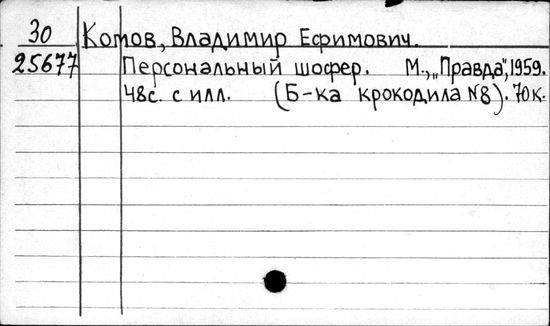 30 Котов, Владимир Ефимович.
25677 Персональный шофер. М., „Правда", 1959.
48с. с илл. (Б-ка крокодила №8). 70к.